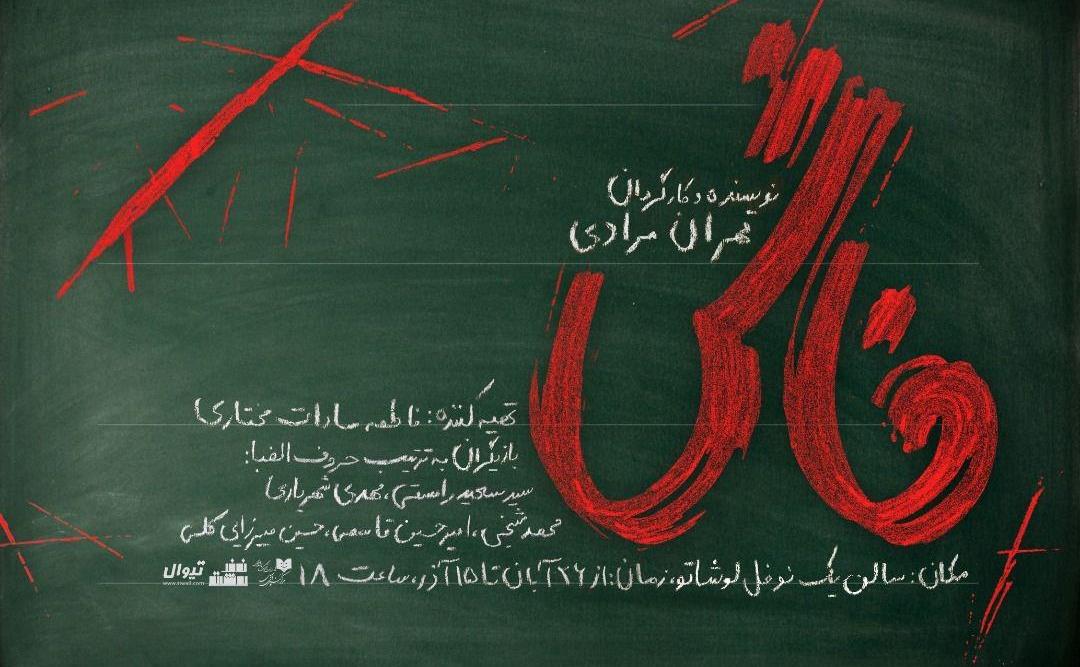 فاش
نویسنده و کارگردان
مهران مرادی
تهیه کننده: فاطمه سادات مختاری
بازیگران به ترتیب حروف الفبا:
سید سعید راستی، مهدی شهریاری
محمد شیخی، امیرحسین قاسمی، حسین میرزایی گلی
مکان: سالن یک نوفل لوشاتو، زمان: از ۲۶ آبان تا ۱۵ آذر، ساعت ۱۸
تیوال
www.tiwall.com